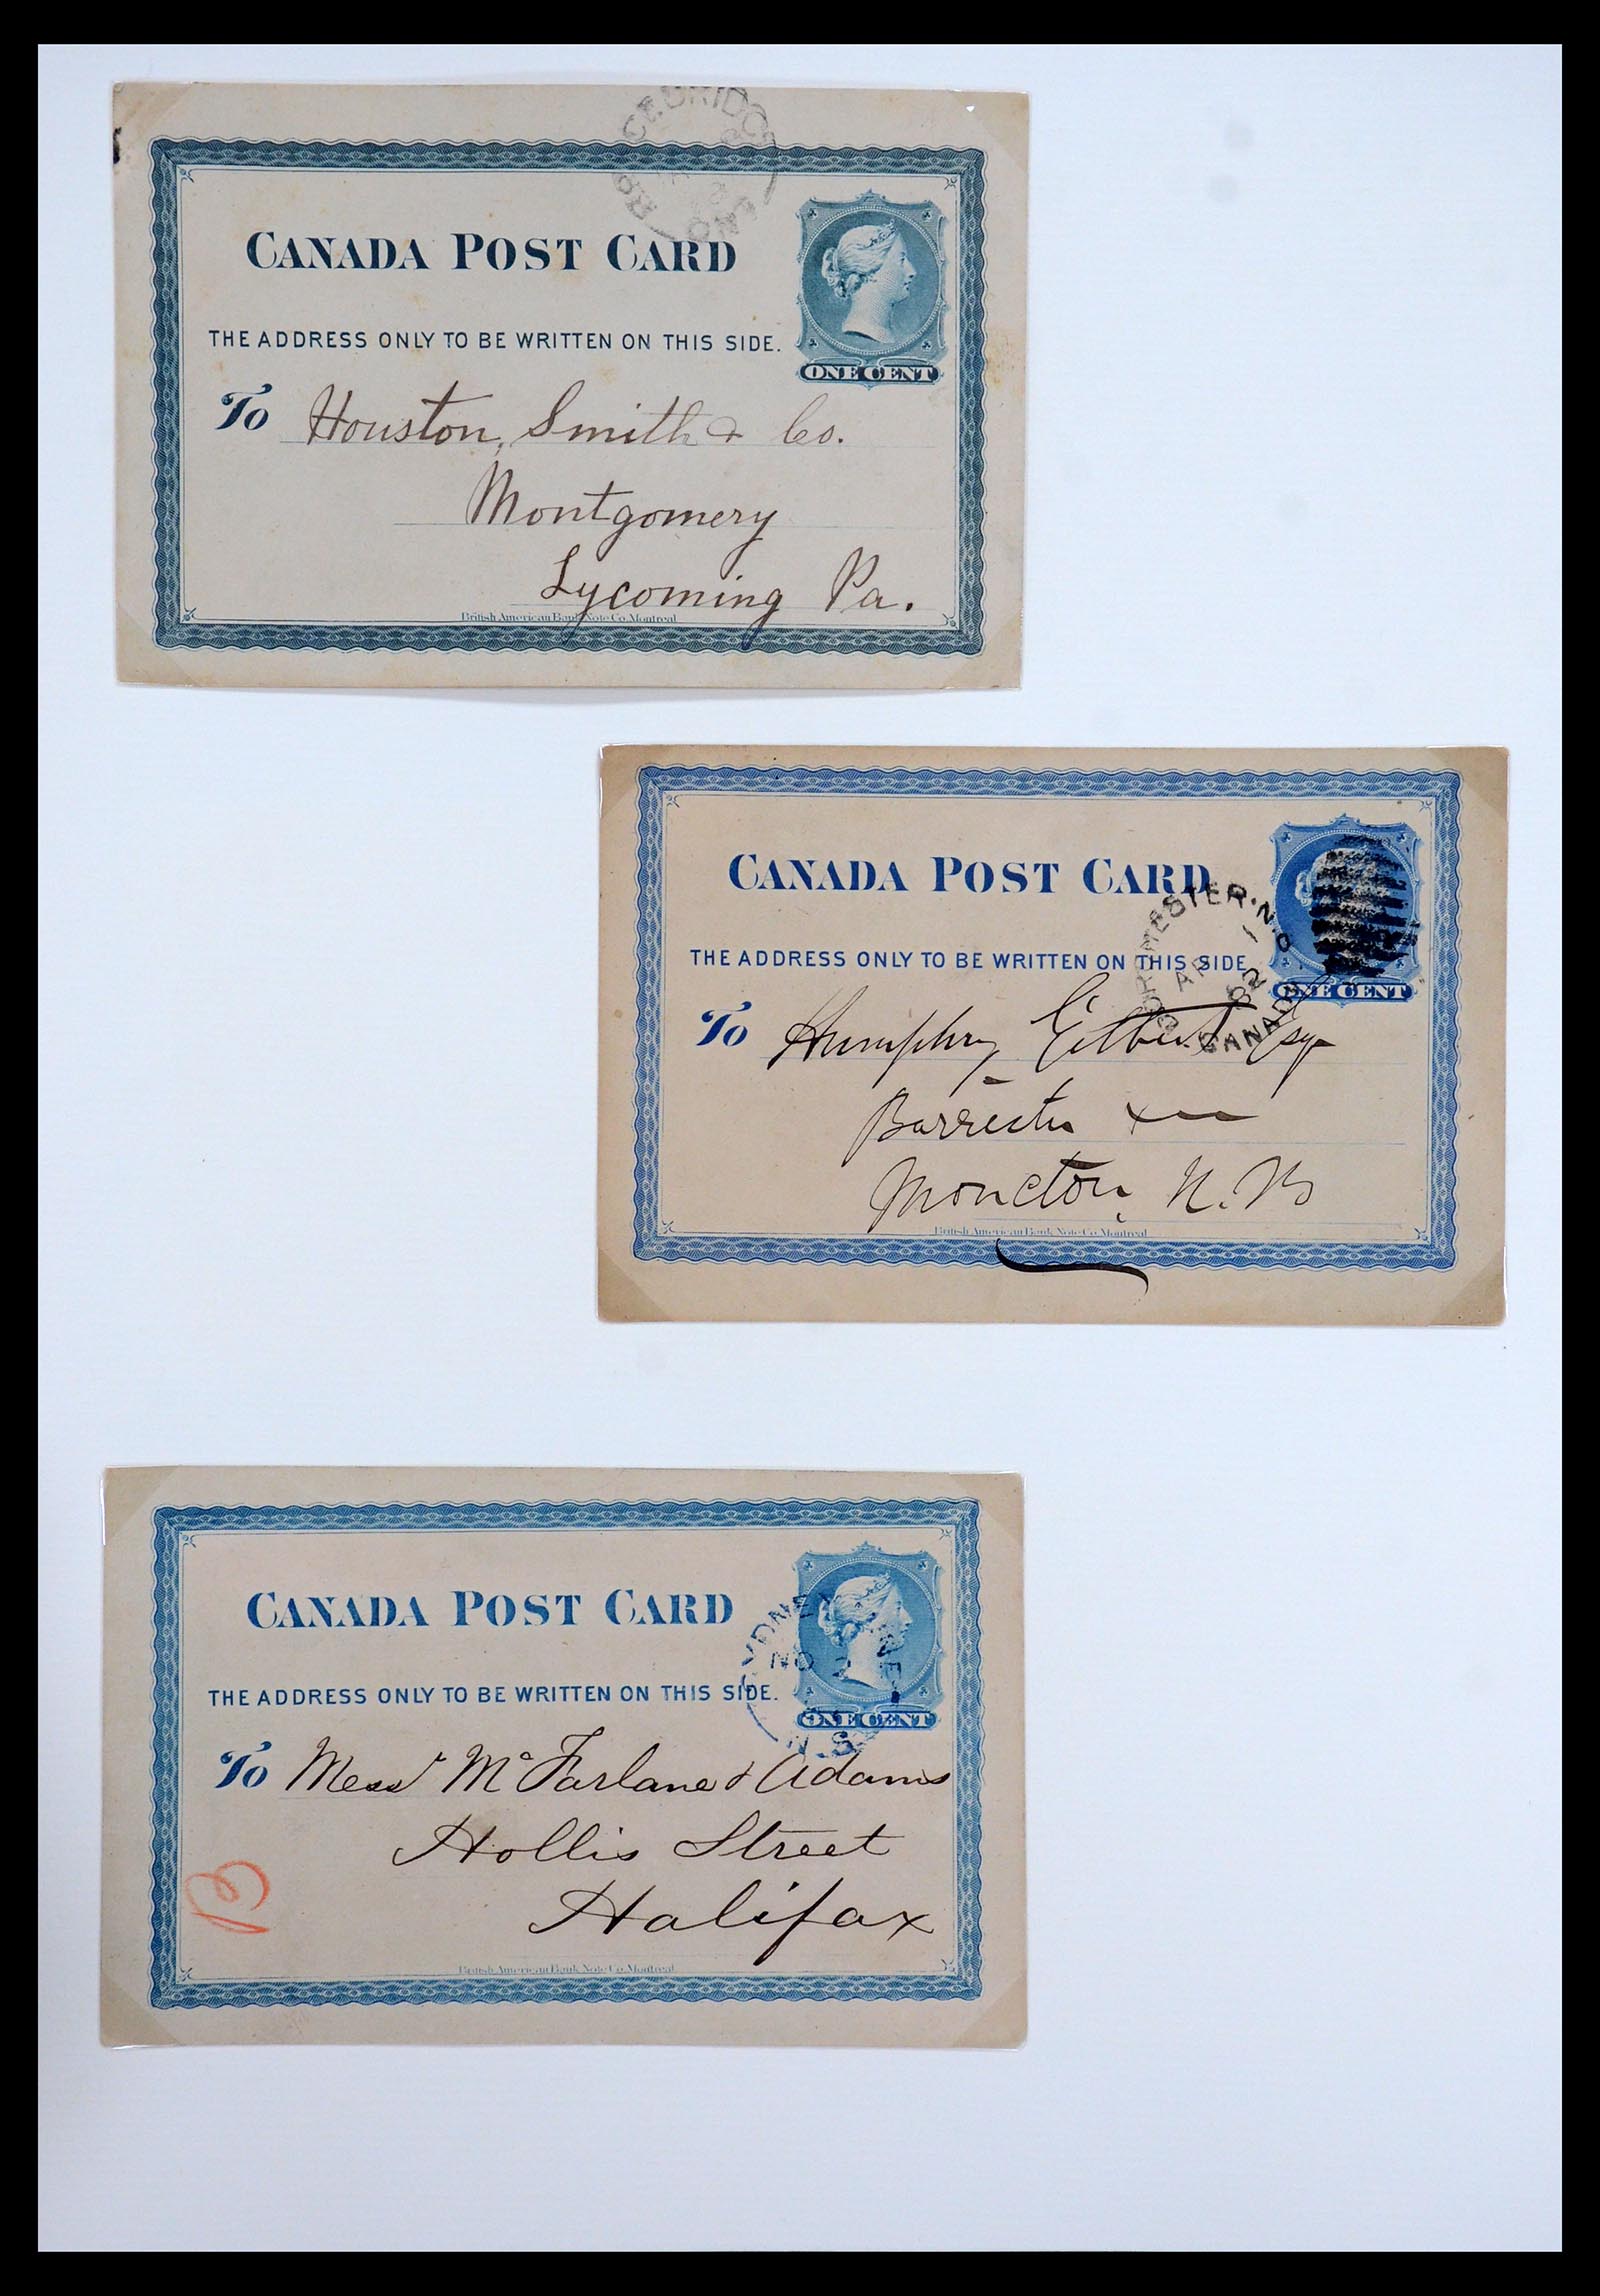 CANADA POST CARD
THE ADDRESS ONLY TO BE WRITTEN ON THIS SIDE.
ONE CENT
To Houston, Smith & Co.
Montgomery
Lycoming Pa.
British American Bank Note Co. Montreal
CANADA POST CARD
THE ADDRESS ONLY TO BE WRITTEN ON THIS SIDE
DORCHESTER. N.B
AP 1
82
CANADA
ONE CENT
To Humphry Gilbert Esqr
Barrester
Moncton, N. B
British American Bank Note Co. Montreal
CANADA POST CARD
THE ADDRESS ONLY TO BE WRITTEN ON THIS SIDE.
SYDNEY
NO
N.S.
ONE CENT
To Messr Mc Farlane & Adams
Hollis Street
Halifax
British American Bank Note Co. Montreal